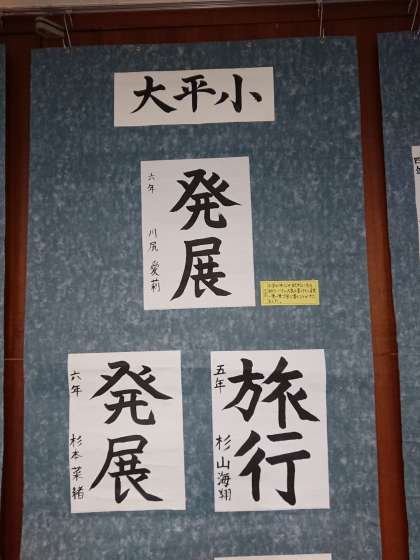 大平小
発展
六年 川尻 愛莉
発展
六年 杉本 菜緒
旅行
五年 杉山海翔